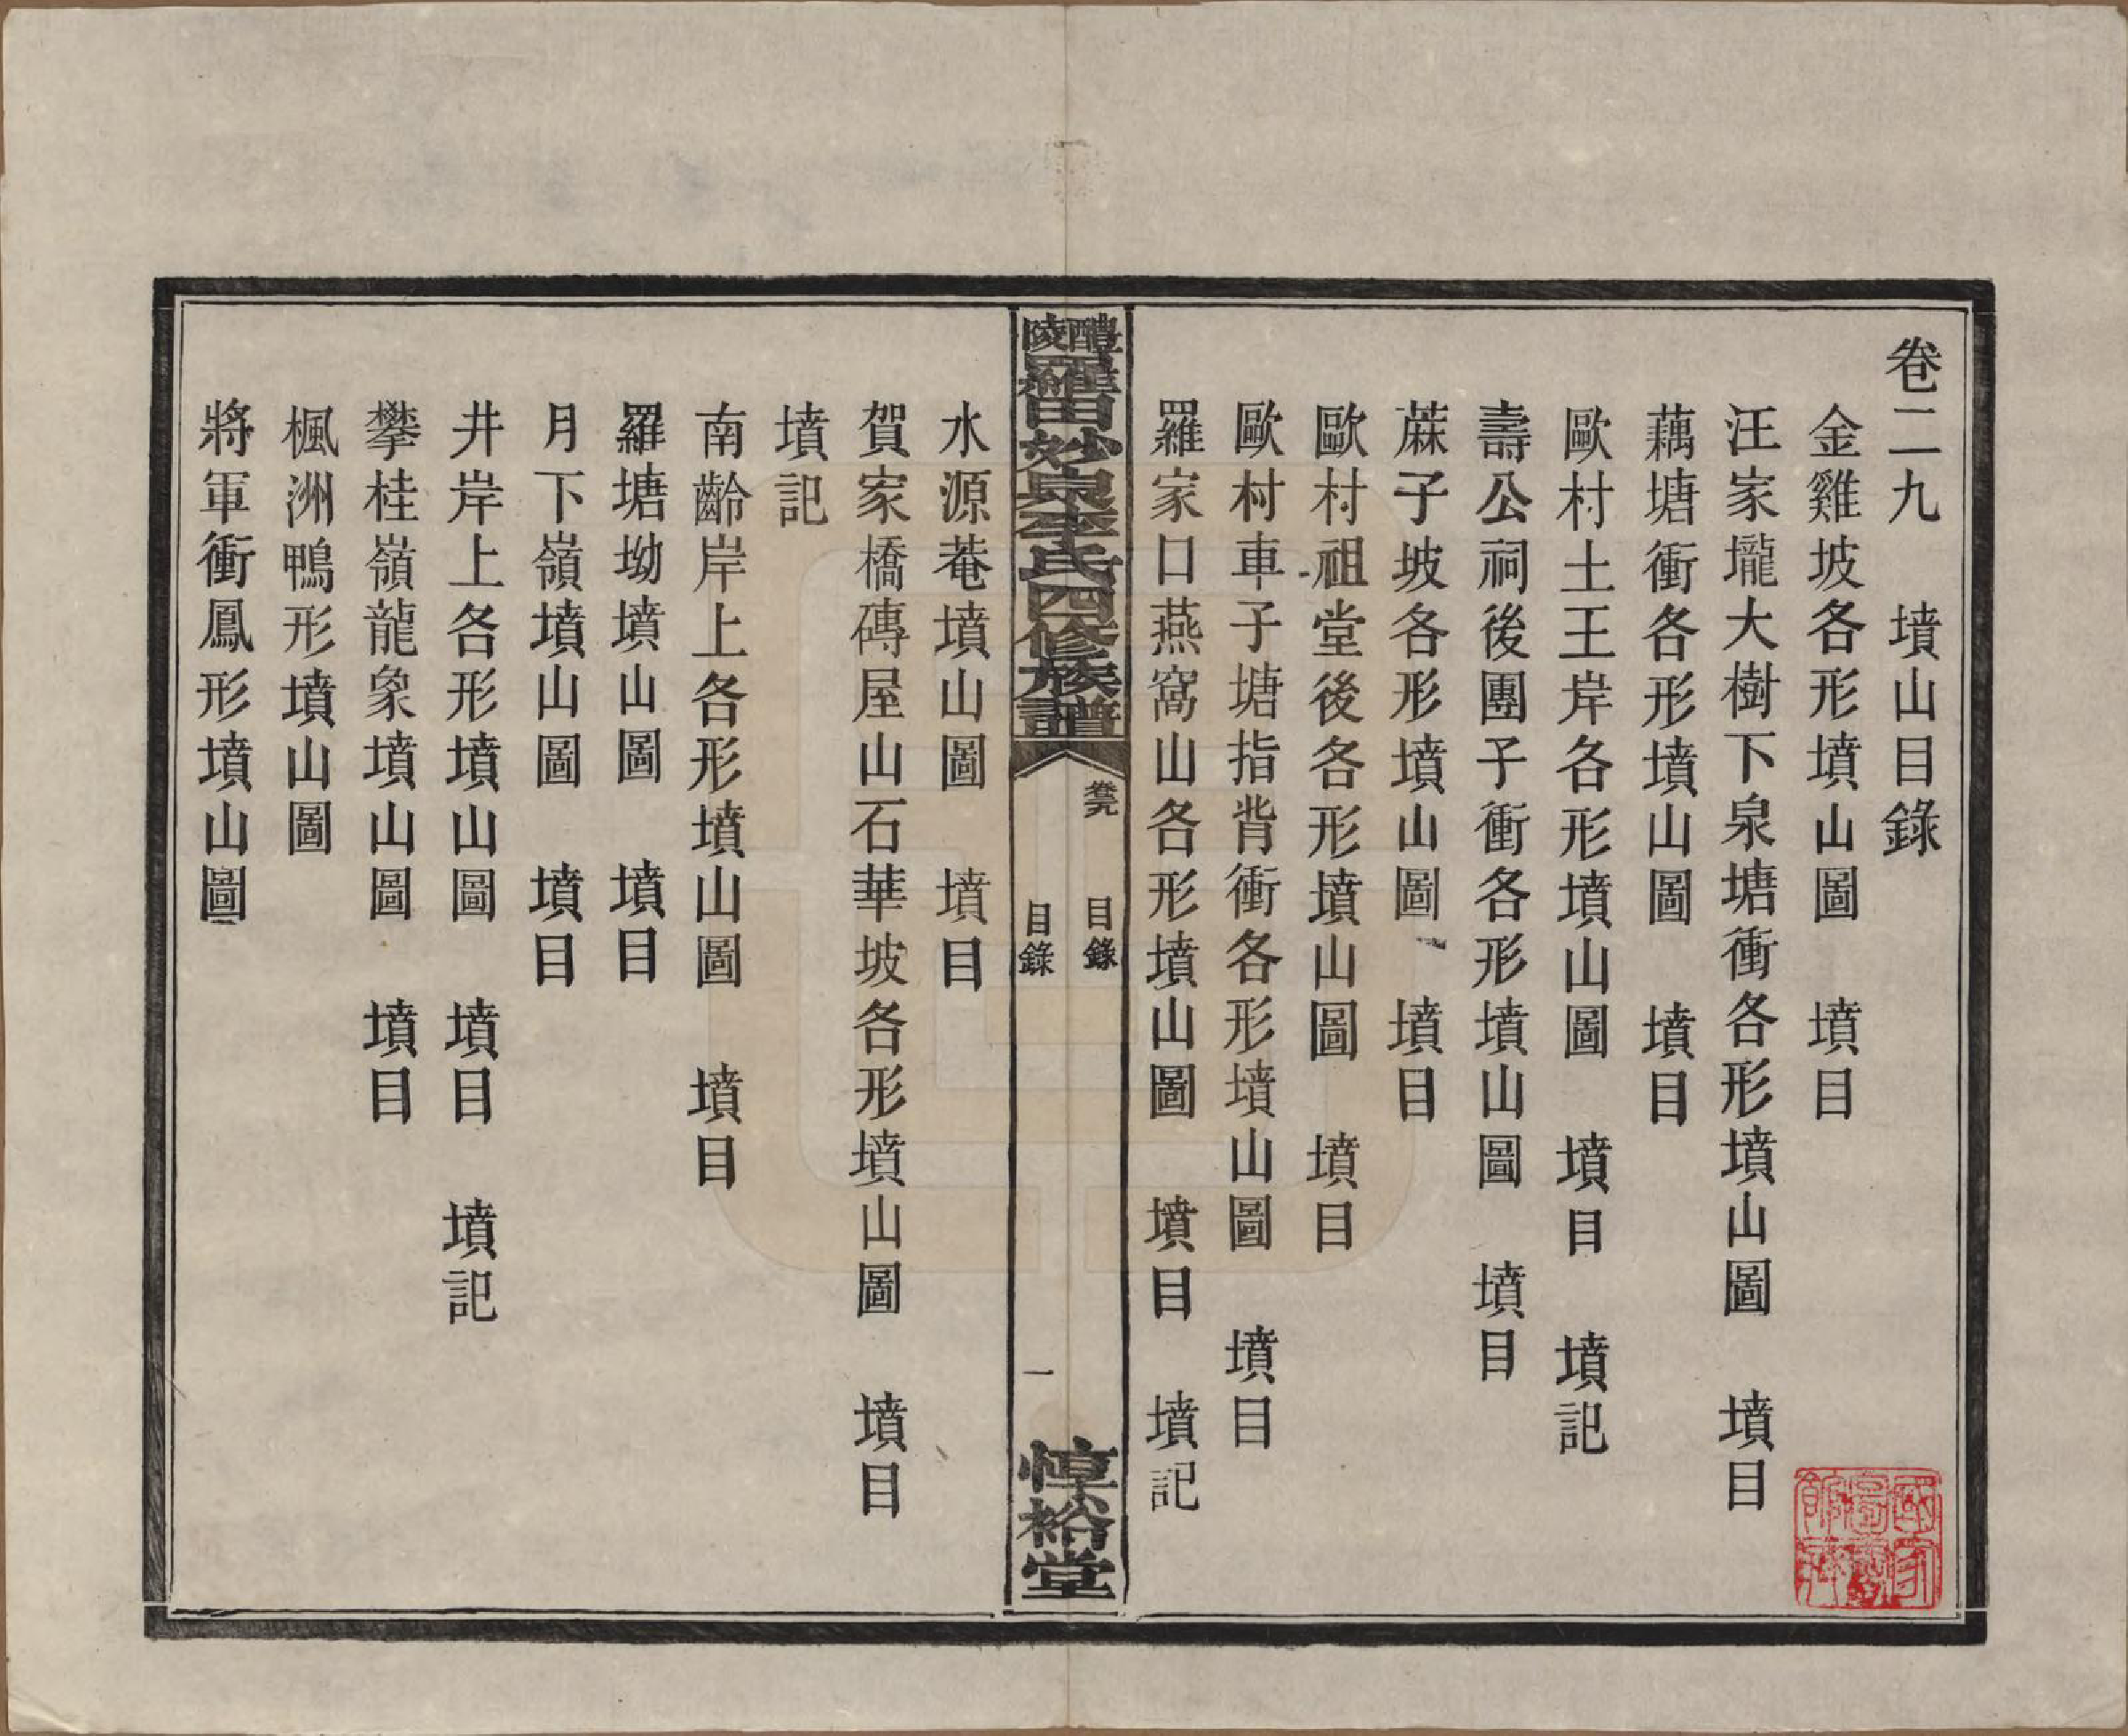 卷二九　墳山目錄
金雞坡各形墳山圖　墳目
汪家壠大樹下泉塘衝各形墳山圖　墳目
藕塘衝各形墳山圖　墳目
歐村土王岸各形墳山圖　墳目　墳記
壽公祠後團子衝各形墳山圖　墳目
蔴子坡各形墳山圖　墳目
歐村祖堂後各形墳山圖　墳目
歐村車子塘指背衝各形墳山圖　墳目
羅家口燕窩山各形墳山圖　墳目　墳記
醴陵羅田妙泉李氏四修族譜
卷二九　目錄
目錄　一
惇裕堂
水源菴墳山圖　墳目
賀家橋磚屋山石華坡各形墳山圖　墳目
墳記
南齡岸上各形墳山圖　墳目
羅塘坳墳山圖　墳目
月下嶺墳山圖　墳目
井岸上各形墳山圖　墳目　墳記
攀桂嶺龍象墳山圖　墳目
楓洲鴨形墳山圖
將軍衝鳳形墳山圖